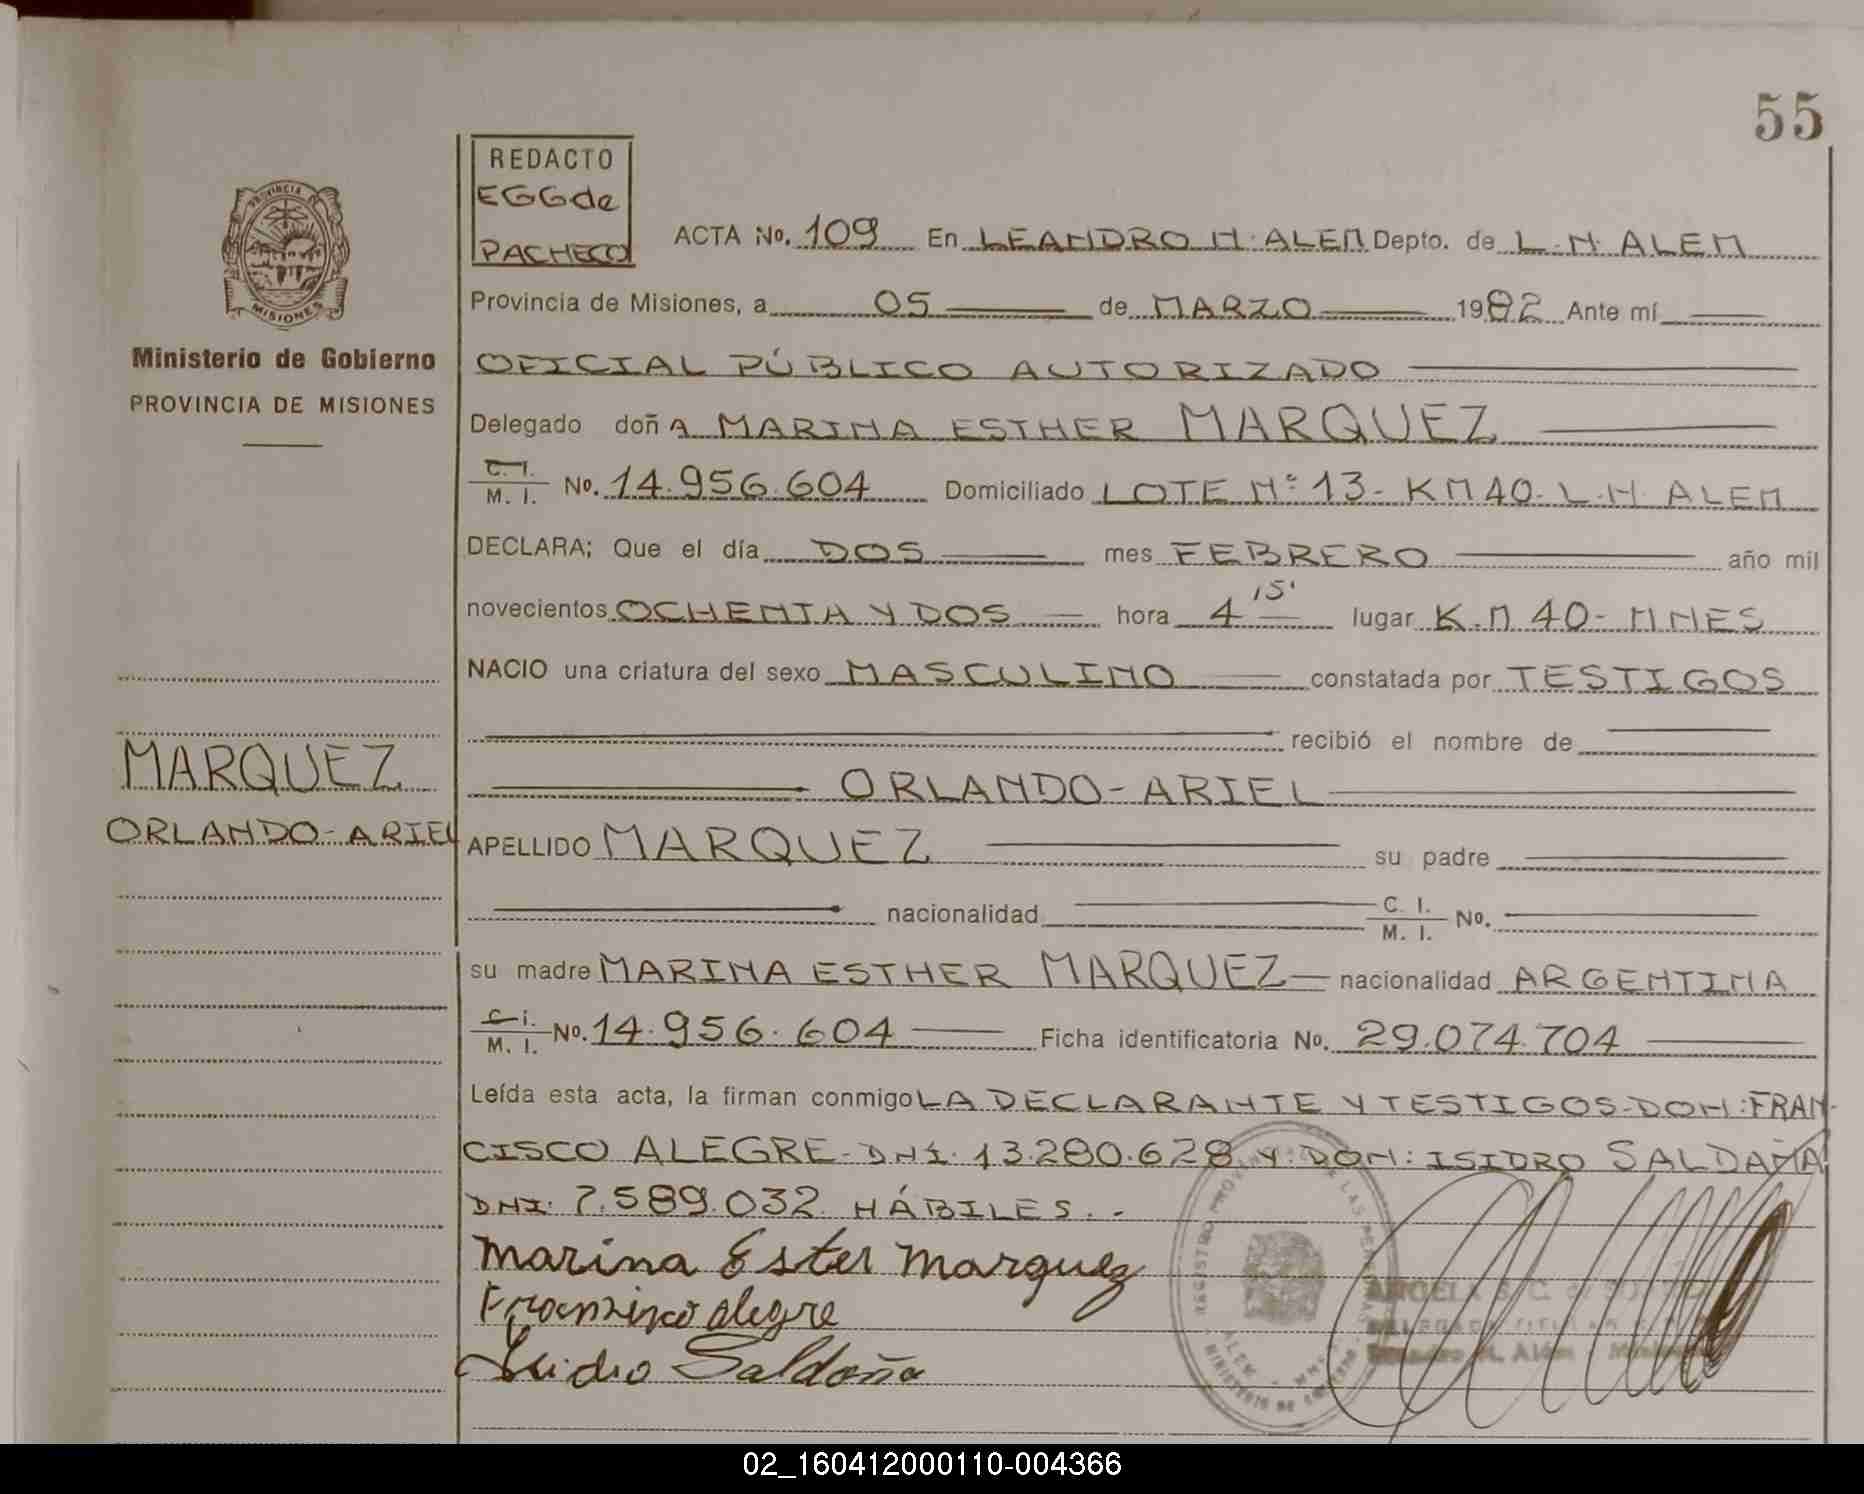 55
REDACTO
EGGde
PACHECO
ACTA No. 109 En LEANDRO N. ALEM Depto. de L. N. ALEM
PROVINCIA DE
MISIONES
Provincia de Misiones, a 05 de MARZO 1982 Ante mí
Ministerio de Gobierno
PROVINCIA DE MISIONES
OFICIAL PÚBLICO AUTORIZADO
Delegado doñA MARINA ESTHER MARQUEZ
C. I. / M. I. No. 14.956.604 Domiciliado LOTE Nº 13- KM 40- L.N. ALEM
DECLARA: Que el día DOS mes FEBRERO año mil
novecientos OCHENTA Y DOS hora 4 15' lugar K.M 40- MNES
NACIO una criatura del sexo MASCULINO constatada por TESTIGOS
recibió el nombre de
MARQUEZ
ORLANDO-ARIEL
ORLANDO-ARIEL
APELLIDO MARQUEZ su padre
nacionalidad C. I. / M. I. No.
su madre MARINA ESTHER MARQUEZ nacionalidad ARGENTINA
C. I. / M. I. No. 14.956.604 Ficha identificatoria No. 29.074.704
Leída esta acta, la firman conmigo LA DECLARANTE Y TESTIGOS-DON: FRAN-
CISCO ALEGRE- DNI. 13.280.628 Y: DON: ISIDRO SALDAÑA
DNI: 7.589.032 HÁBILES.-
Marina Ester Marquez
Franzisco alegre
Isidro Saldaña
REGISTRO PROVINCIAL DE LAS PERSONAS
MINISTERIO DE GOBIERNO
ALEM - MNES
ANGELA S. C. de
DELEGADA TITULAR
Leandro N. Além - Misiones
02_160412000110-004366